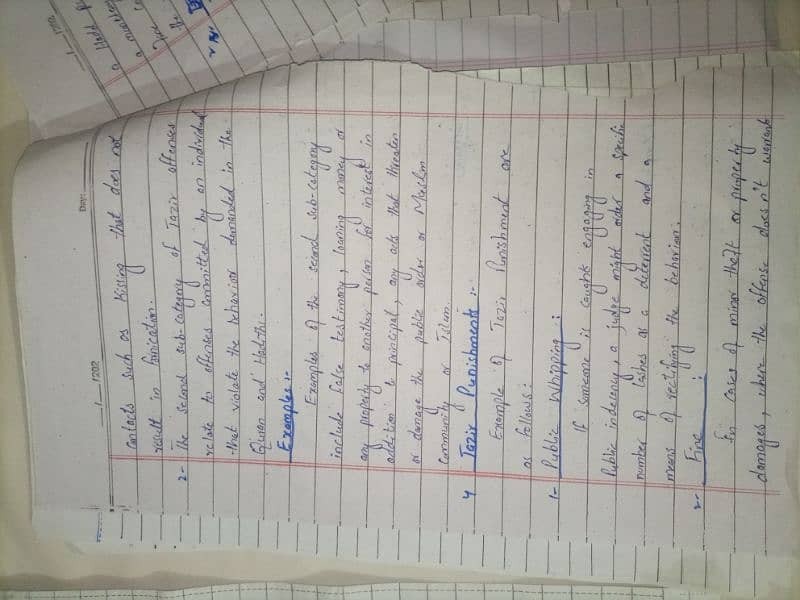 Day:
__/__/202
contacts such as kissing that does not
result in funication.
2- The second sub-category of Tazir offenses
relate to offenses committed by an individual
that violate the behavior demanded in the
Quran and Hadith.
Examples:-
Examples of the second sub-category
include false testimony, loaning money or
any property to another person for interest in
addition to principal, any acts that threaten
or damage the public order or Muslim
Community or Islam.
4 Tazir Punishments :-
Example of Tazir Punishment are
as follows:
1- Public Whipping :
If someone is caught engaging in
Public indecency, a judge might order a specific
number of lashes as a deterrent and a
means of rectifying the behavior.
2- Fine :
In cases of minor theft or property
damages, where the offense doesn't warrant
__/__/202
Hadd
a
the